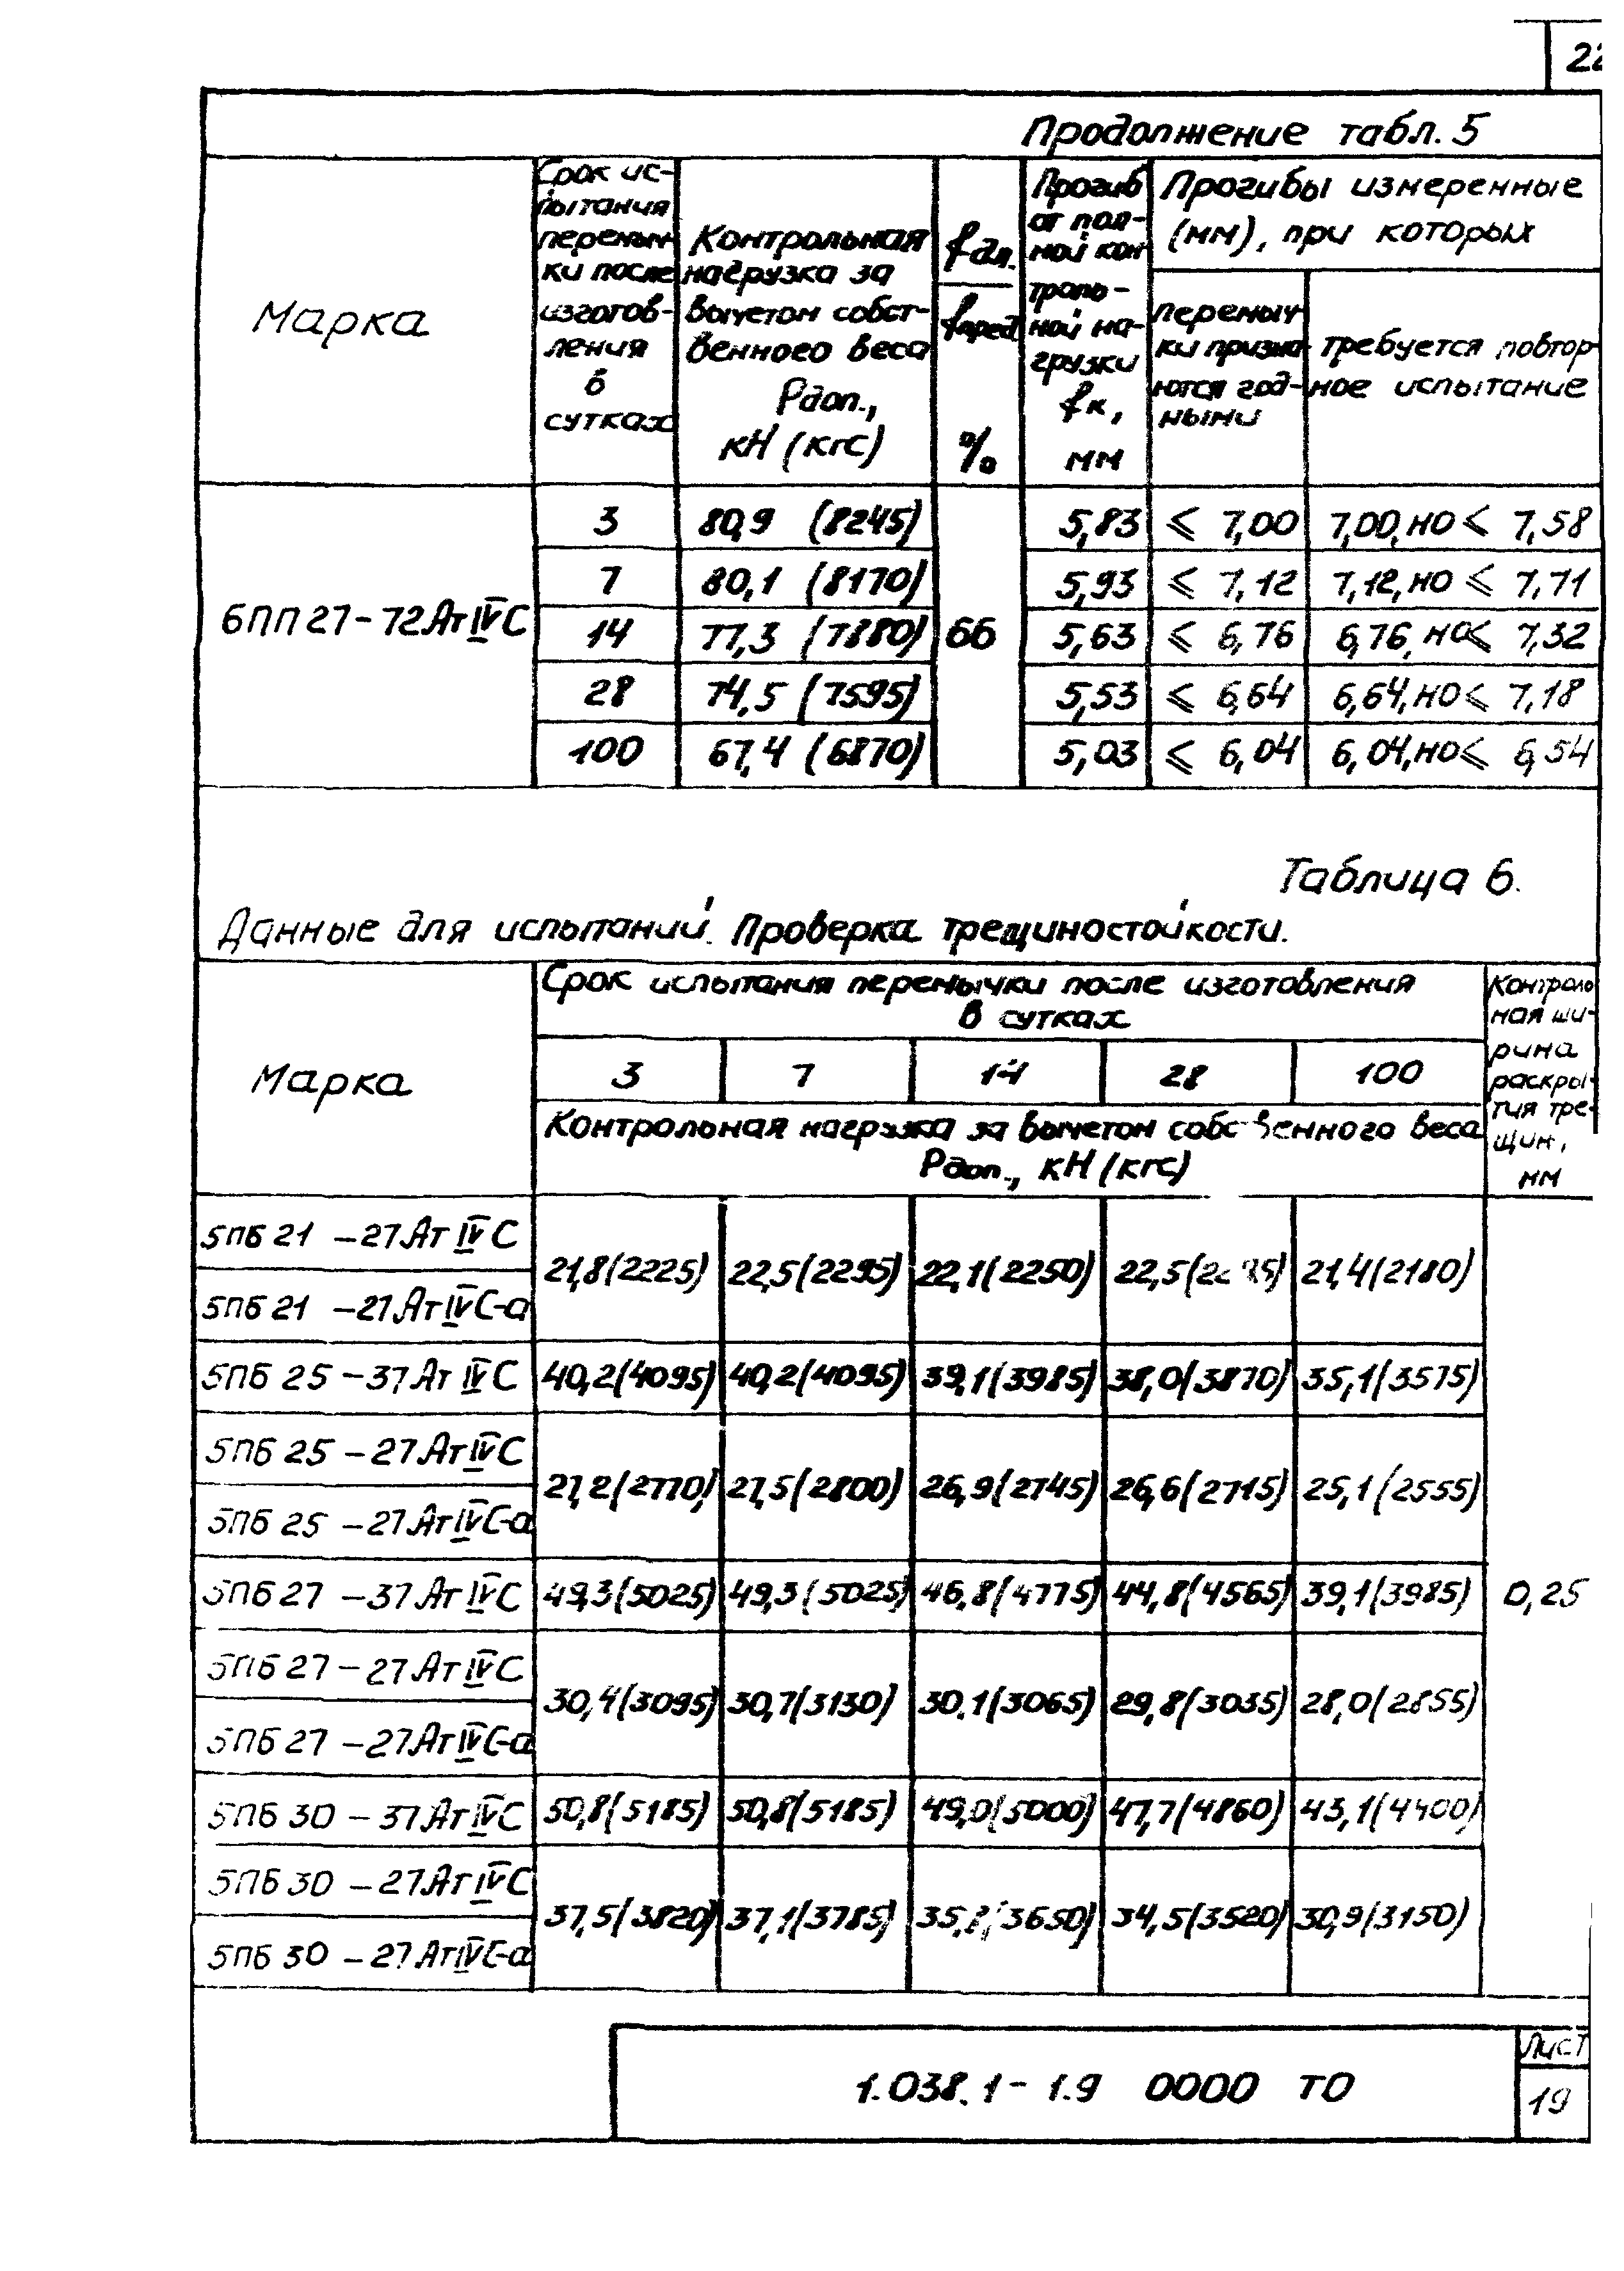 22
Продолжение табл. 5
Марка
Срок ис-
пытания
перемыч-
ки после
изготов-
ления
в
сутках
Контрольная
нагрузка за
вычетом собст-
венного веса
Рдоп.,
кН (кгс)
fдл.
fпред
%
Прогиб
от пол-
ной кон
троль-
ной на-
грузки
fк,
мм
Прогибы измеренные
(мм), при которых
перемыч-
ки призна-
ются год-
ными
требуется повтор-
ное испытание
6ПП27-72АтIVС
66
3 80,9 (8245) 5,83 ⩽ 7,00 7,00, но ⩽ 7,58
7 80,1 (8170) 5,93 ⩽ 7,12 7,12, но ⩽ 7,71
14 77,3 (7880) 5,63 ⩽ 6,76 6,76, но ⩽ 7,32
28 74,5 (7595) 5,53 ⩽ 6,64 6,64, но ⩽ 7,18
100 67,4 (6870) 5,03 ⩽ 6,04 6,04, но ⩽ 6,54
Таблица 6.
Данные для испытаний. Проверка трещиностойкости.
Марка
Срок испытания перемычки после изготовления
в сутках
3 7 14 28 100
Контрольная нагрузка за вычетом собственного веса
Рдоп., кН (кгс)
Контроль
ная ши-
рина
раскры-
тия тре-
щин,
мм
5ПБ 21 -27АтIVС
5ПБ 21 -27АтIVС-а
21,8(2225) 22,5(2295) 22,1(2250) 22,5 21,4(2180)
5ПБ 25 -37АтIVС 40,2(4095) 40,2(4095) 39,1(3985) 38,0(3870) 35,1(3575)
5ПБ 25 -27АтIVС
5ПБ 25 -27АтIVС-а
27,2(2770) 27,5(2800) 26,9(2745) 26,6(2715) 25,1(2555)
5ПБ 27 -37АтIVС 49,3(5025) 49,3(5025) 46,8(4775) 44,8(4565) 39,1(3985) 0,25
5ПБ 27 -27АтIVС
5ПБ 27 -27АтIVС-а
30,4(3095) 30,7(3130) 30.1(3065) 29,8(3035) 28,0(2855)
5ПБ 30 -37АтIVС 50,8(5185) 50,8(5185) 49,0(5000) 47,7(4860) 43,1(4400)
5ПБ 30 -27АтIVС
5ПБ 30 -27АтIVС-а
37,5(3820) 37,1(3785) (3650) 34,5(3520) 30,9(3150)
1.038.1-1.9 0000 ТО
Лист
19